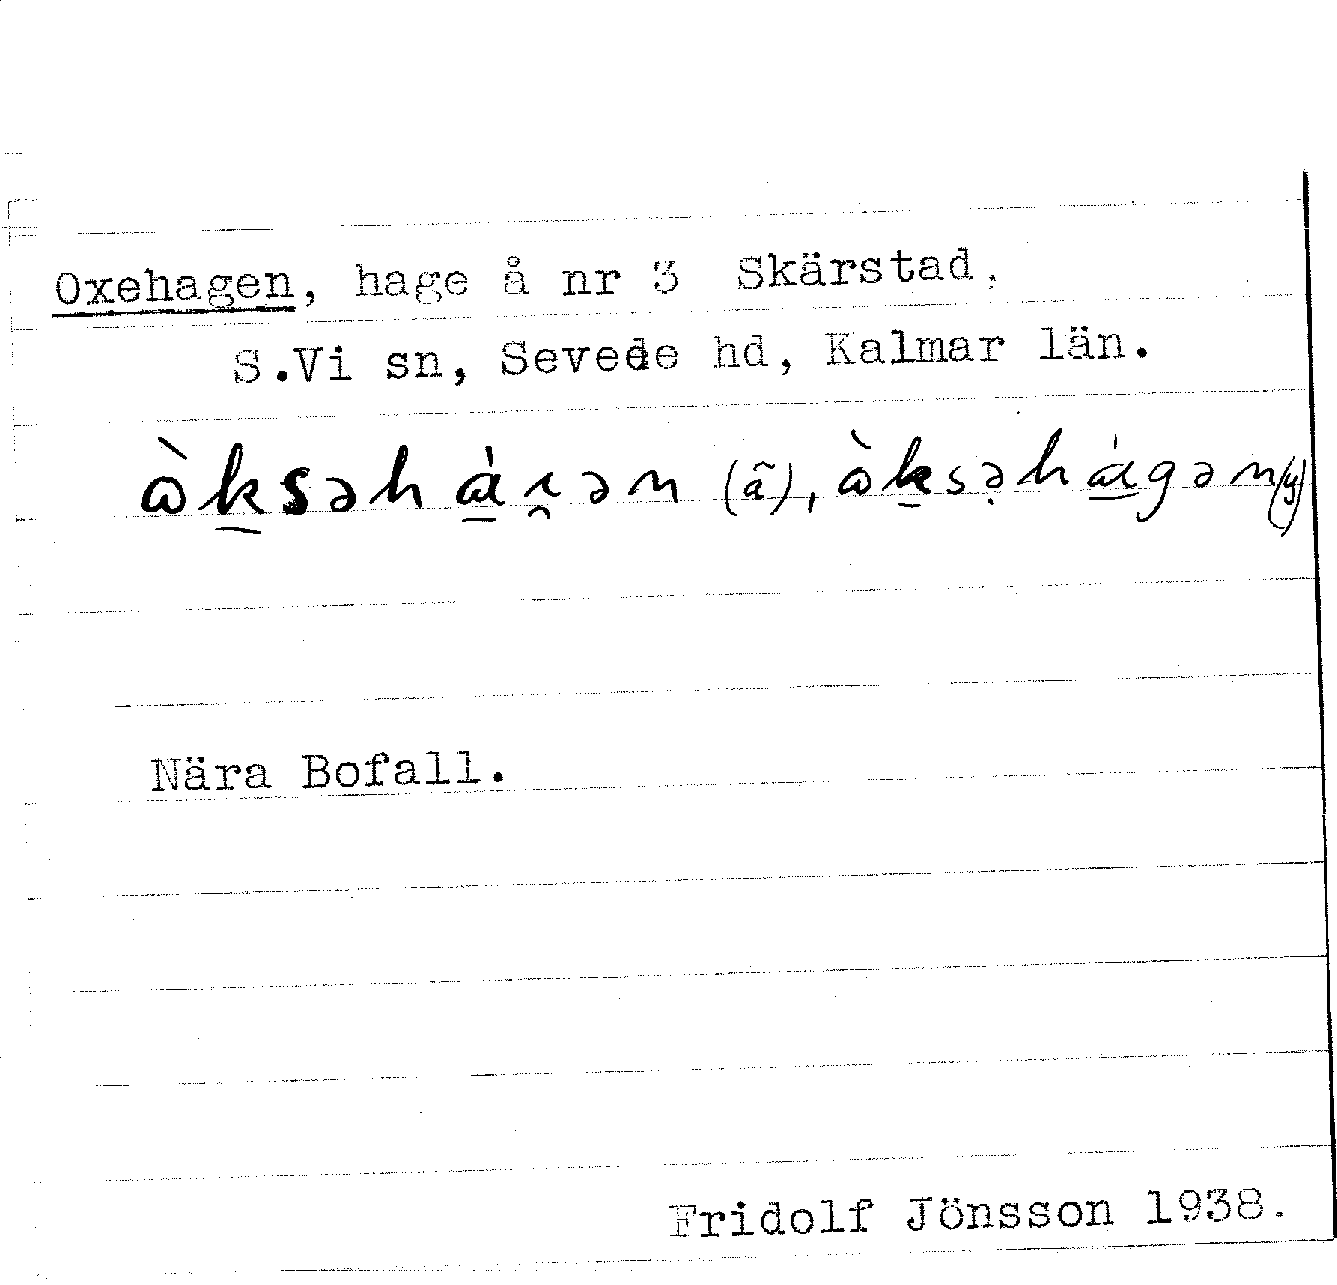 Oxehagen, hage å nr 3 Skärstad.
S.Vi sn, Sevede hd, Kalmar län.
Nära Bofall.
Fridolf Jönsson 1938.